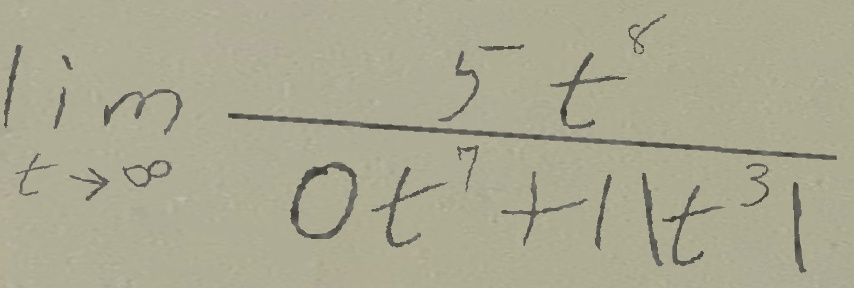 \lim_{t \to \infty} \frac{5t^8}{0t^7 + 1|t^3|}